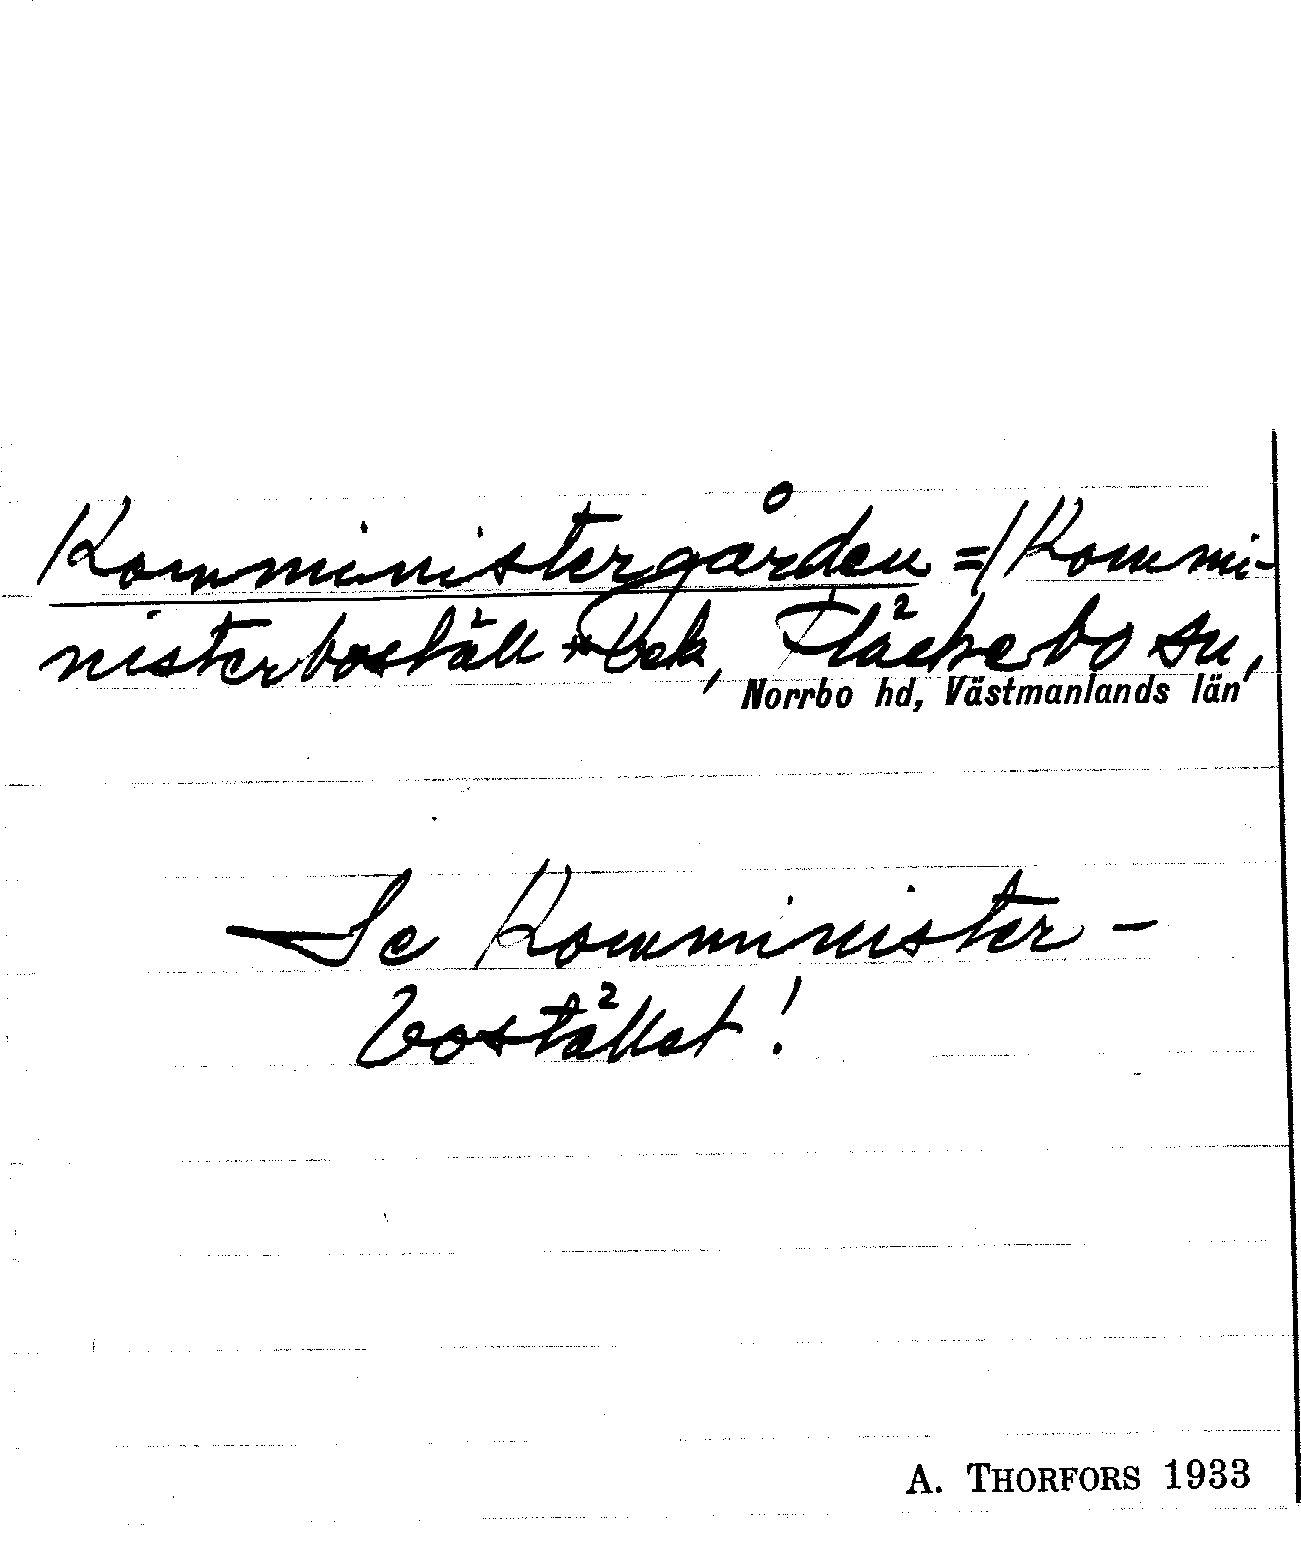 Kommunistergården =/Kommi-
nisterboställe ek, Fläckebo sn,
Norrbo hd, Västmanlands län
Se Komminister-
bostället!
A. THORFORS 1933